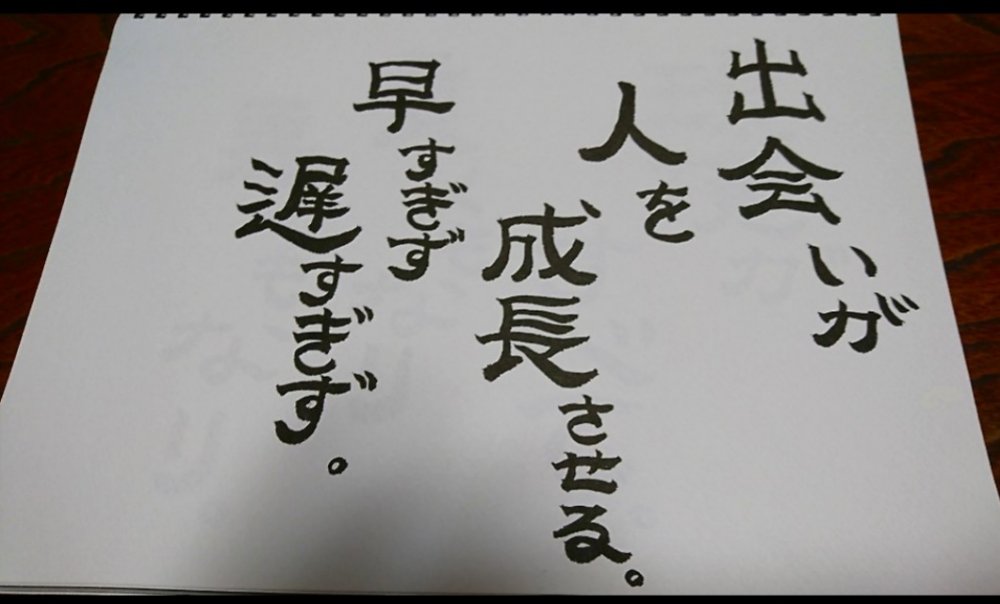 出会いが
人を
成長させる。
早すぎず
遅すぎず。